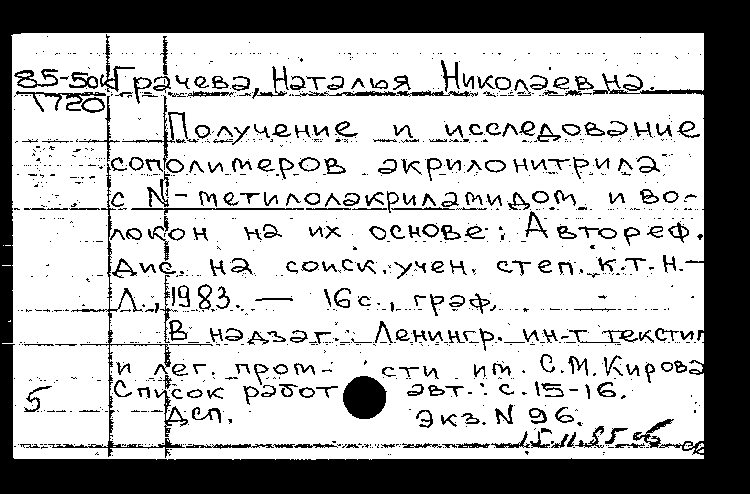 85-50к Грачева, Наталья Николаевна.
1720
Получение и исследование
сополимеров акрилонитрила
с N-метилолакриламидом и во-
локон на их основе: Автореф.
дис. на соиск. учен. степ. к.т.н.—
Л., 1983. — 16 с., граф.
В надзаг.: Ленингр. ин-т текстил
и лег. пром-сти им. С.М.Кирова
Список работ авт.: с. 15-16.
5 ДСП. Экз. N 96.
15.11.85